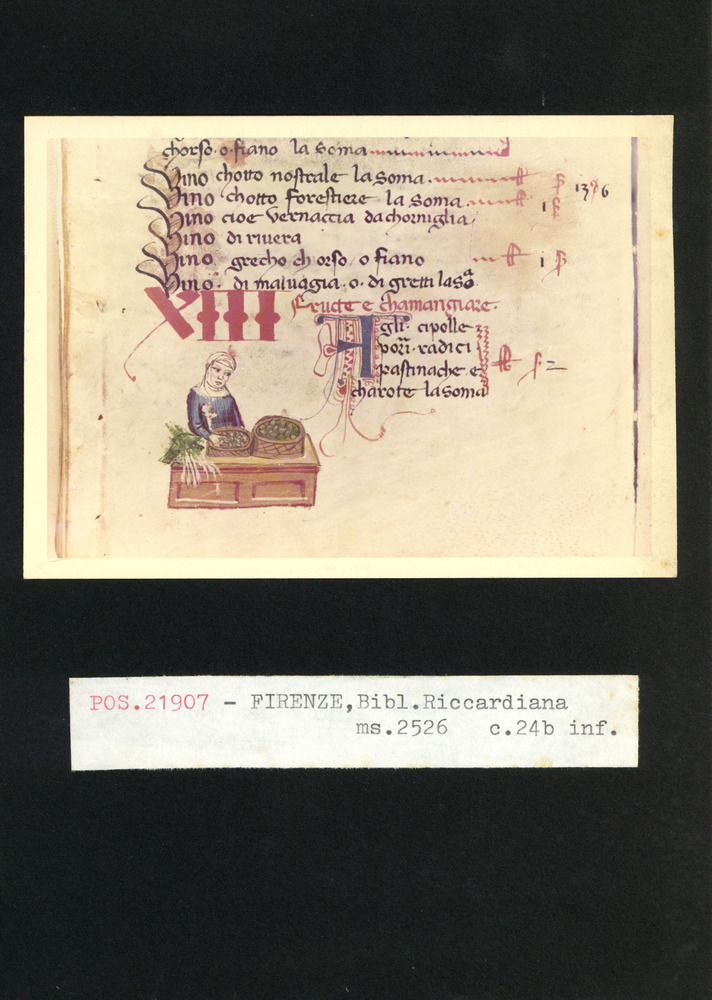 chorso o fiano la soma
Vino chotto nostrale la soma
Vino chotto forestiere la soma
Vino cioe vernaccia da chorniglia
Vino di riuera
Vino grecho chorso o fiano
Vino di maluagia o di gretti la soᵃ
XIII Fructe e chamangiare
Agli cipolle
porri radici
pastinache e
charote la soma
POS.21907 - FIRENZE,Bibl.Riccardiana
ms.2526 c.24b inf.